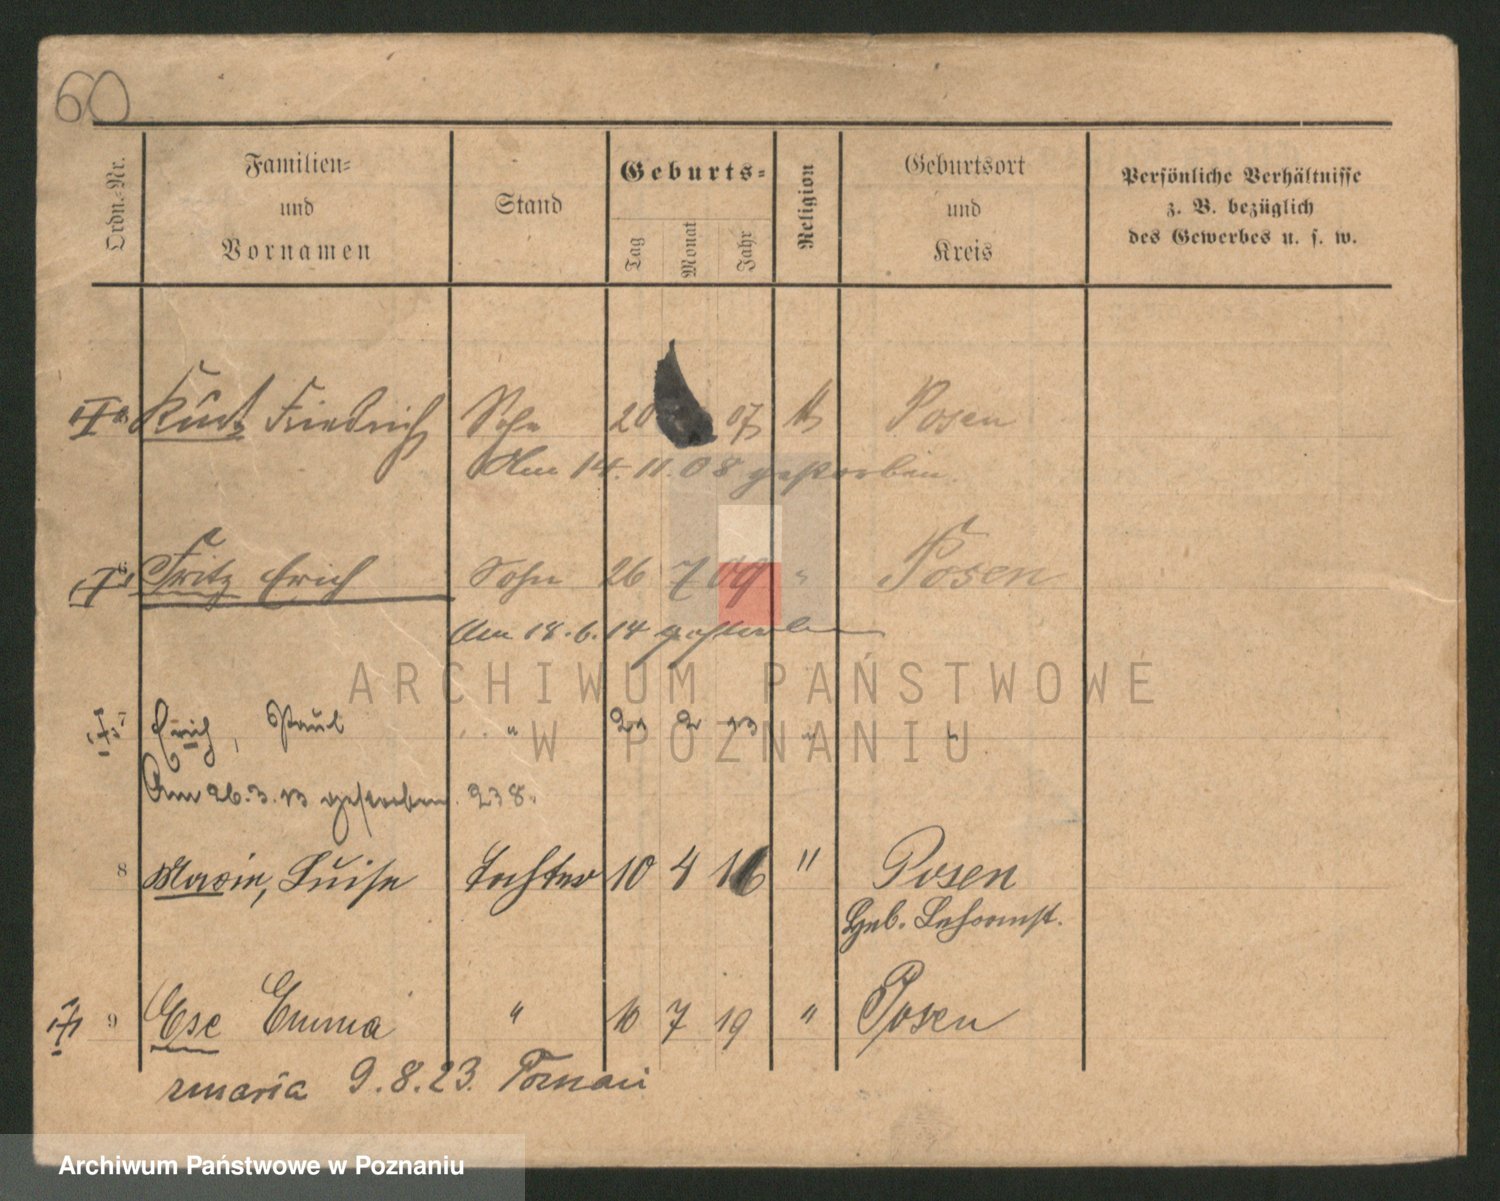 60
Ordn.-Nr.
Familien-
und
Vornamen
Stand
Geburts-
Tag
Monat
Jahr
Religion
Geburtsort
und
Kreis
Persönliche Verhältnisse
z. B. bezüglich
des Gewerbes u. s. w.
Kurt Friedrich Sohn 20 07 Posen
Am 14.11.08 gestorben.
6 Fritz Erich Sohn 26 7 09 " Posen
Am 18.6.14 gestorben
7 Erich, Paul " 2 13 " "
Am 26.3.13 gestorben. 238.
8 Marie, Luise Tochter 10 4 16 " Posen
Geb.
9 Else Emma " 10 7 19 " Posen
zmarła 9.8.23. Poznań
ARCHIWUM PAŃSTWOWE
W POZNANIU
Archiwum Państwowe w Poznaniu